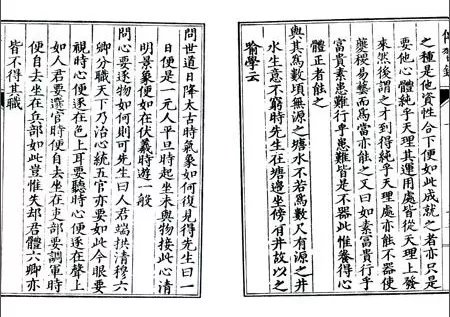 之種是他資性合下便如此成就之者亦只是
要他心體純乎天理其運用處皆從天理上發
來然後謂之才到得純乎天理處亦能不器使
夔稷易藝而為當亦能之又曰如素富貴行乎
富貴素患難行乎患難皆是不器此惟養得心
體正者能之
與其為數頃無源之塘水不若為數尺有源之井
水生意不窮時先生在塘邊坐傍有井故以之
喻學云
問世道日降太古時氣象如何復見得先生曰一
日便是一元人平旦時起坐未與物接此心清
明景象便如在伏羲時遊一般
問心要逐物如何則可先生曰人君端拱清穆六
卿分職天下乃治心統五官亦要如此今眼要
視時心便逐在色上耳要聽時心便逐在聲上
如人君要選官時便自去坐在吏部要調軍時
便自去坐在兵部如此豈惟失却君體六卿亦
皆不得其職